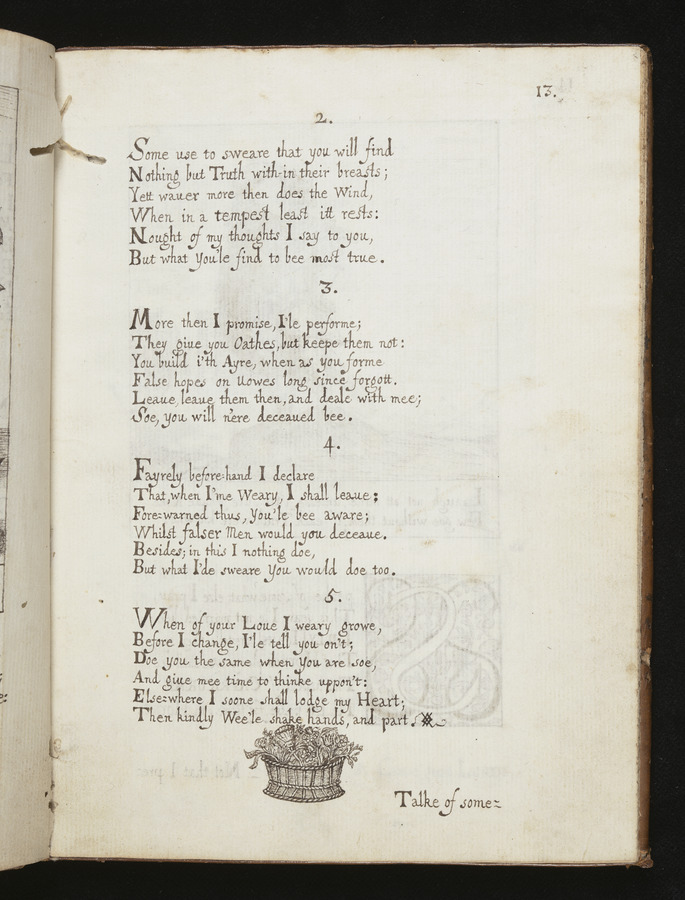 13.
2.
Some use to sweare that you will find
Nothing but Truth with-in their breasts;
Yett wauer more then does the Wind,
When in a tempest least itt rests:
Nought of my thoughts I say to you,
But what You'le find to bee most true.
3.
More then I promise, I'le performe;
They giue you Oathes, but keepe them not:
You build i'th Ayre, when as you forme
False hopes on Uowes long since forgott.
Leaue, leaue them then, and deale with mee;
Soe, you will n'ere deceaued bee.
4.
Fayrely before-hand I declare
That, when I'me Weary, I shall leaue;
Fore=warned thus, You'le bee aware;
Whilst falser Men would you deceaue.
Besides; in this I nothing doe,
But what I'de sweare You would doe too.
5.
When of your Loue I weary growe,
Before I change, I'le tell you on't;
Doe you the same when You are soe,
And giue mee time to thinke uppon't:
Else=where I soone shall lodge my Heart;
Then kindly Wee'le shake hands, and part.
Talke of some=